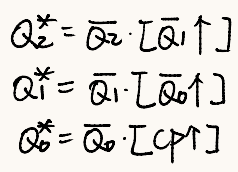 Q₂* = Q̅₂·[Q̅₁↑]
Q₁* = Q̅₁·[Q̅₀↑]
Q₀* = Q̅₀·[CP↑]